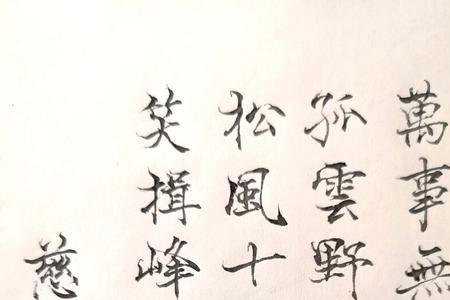 萬事無
孤雲野
松風十
笑揖峰
慈